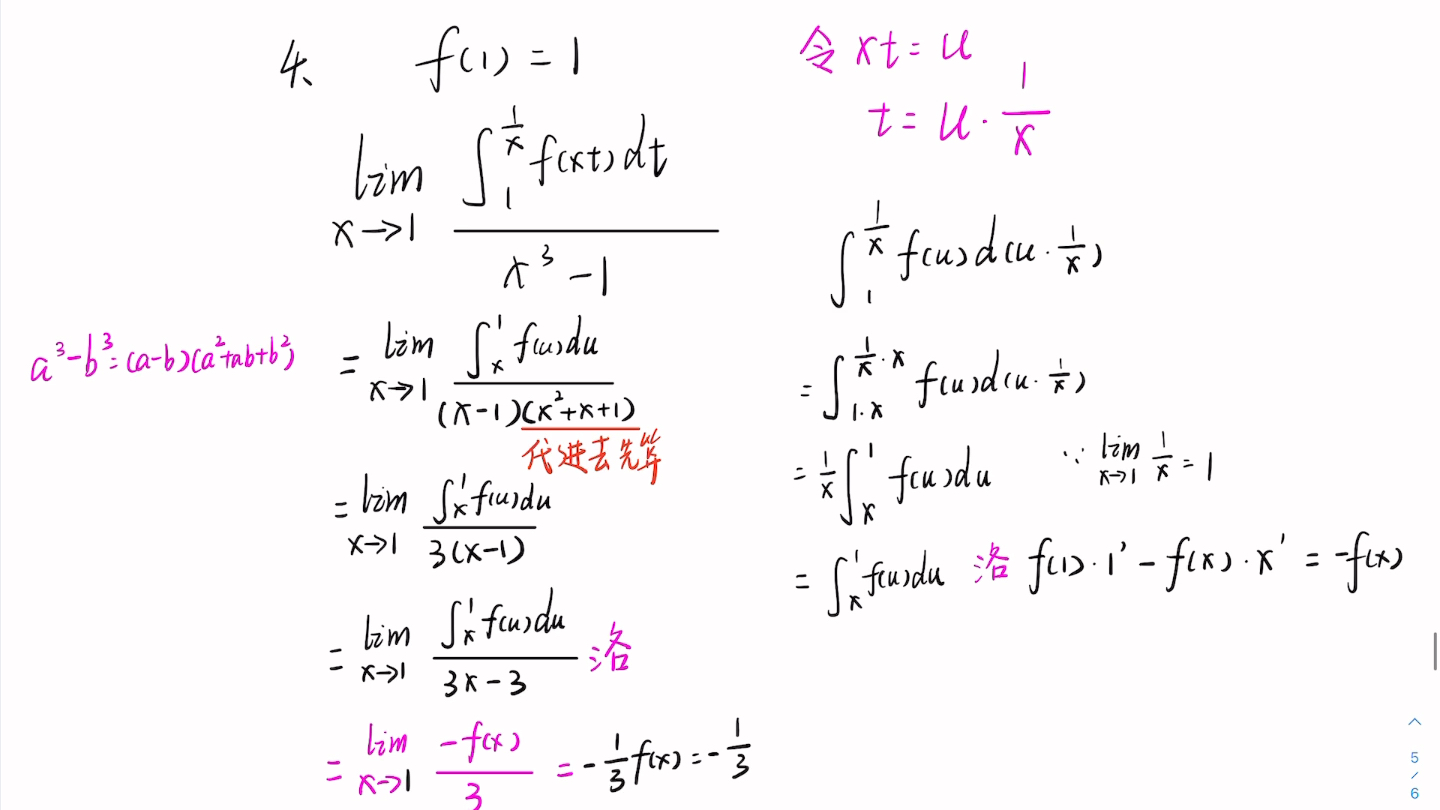 4、 f(1) = 1
lim x→1 ∫₁^(1/x) f(xt)dt / (x³ - 1)
a³-b³=(a-b)(a²+ab+b²)
= lim x→1 ∫ₓ¹ f(u)du / (x-1)(x²+x+1)
代进去先算
= lim x→1 ∫ₓ¹ f(u)du / 3(x-1)
= lim x→1 ∫ₓ¹ f(u)du / (3x-3) 洛
= lim x→1 -f(x) / 3 = -1/3 f(x) = -1/3
令 xt = u
t = u · 1/x
∫₁^(1/x) f(u)d(u · 1/x)
= ∫_(1·x)^(1/x · x) f(u)d(u · 1/x)
= 1/x ∫ₓ¹ f(u)du ∵ lim x→1 1/x = 1
= ∫ₓ¹ f(u)du 洛 f(1)·1' - f(x)·x' = -f(x)
5
/
6